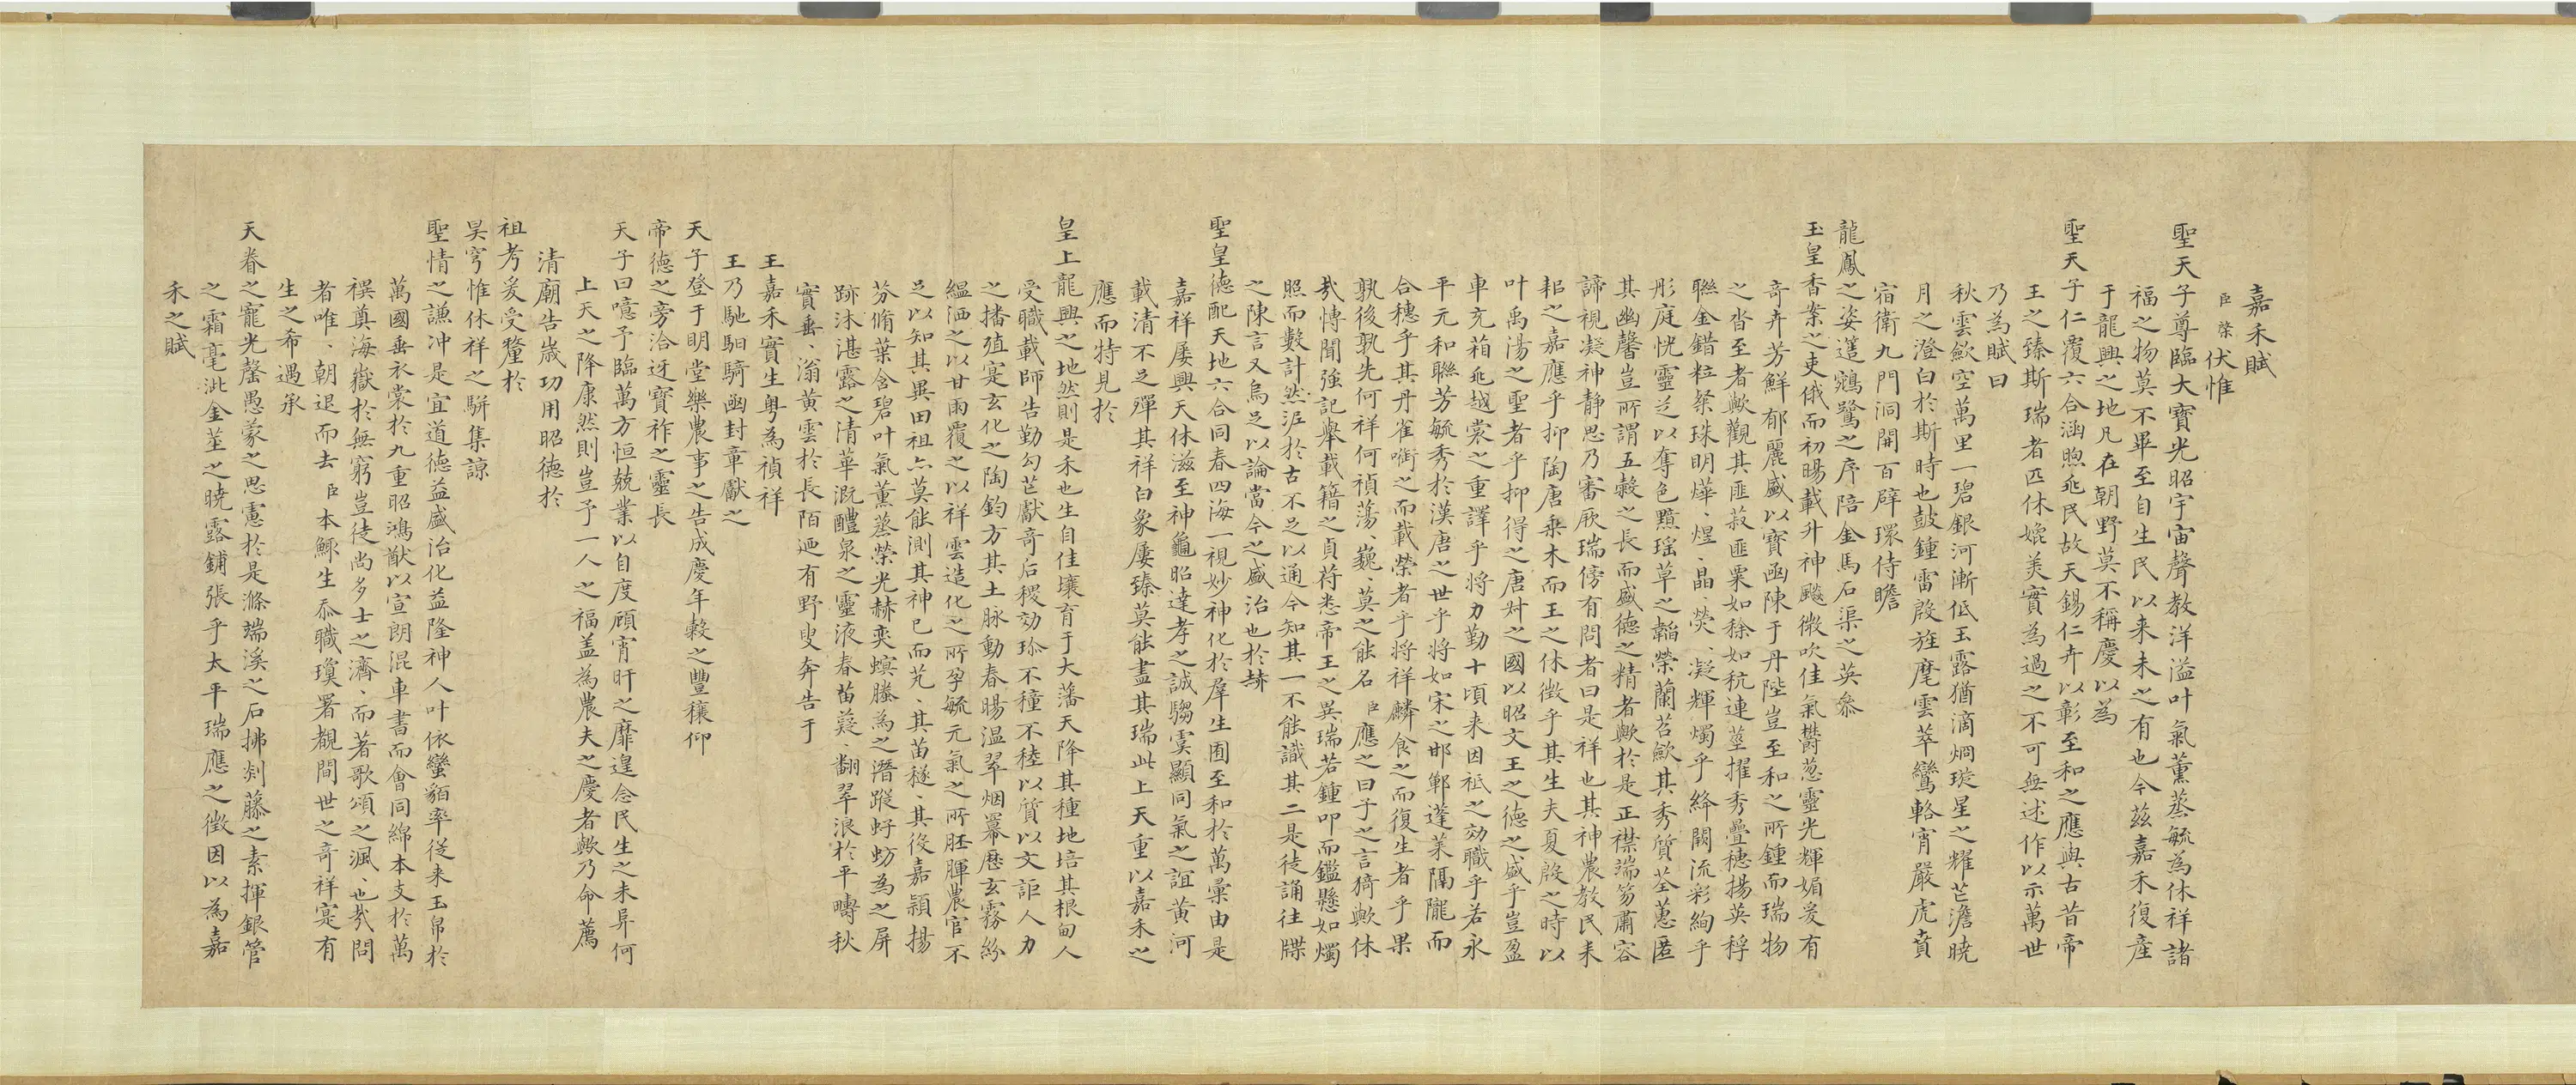 嘉禾賦
臣榮伏惟
聖天子尊臨大寶光昭宇宙聲教洋溢叶氣薰蒸毓為休祥諸
福之物莫不畢至自生民以来未之有也今茲嘉禾復産
于龍興之地凡在朝野莫不稱慶以為
聖天子仁覆六合涵煦兆民故天錫仁卉以彰至和之應與古昔帝
王之臻斯瑞者匹休媲美實為過之不可無述作以示萬世
乃為賦曰
秋雲歛空萬里一碧銀河漸低玉露猶滴烱璇星之耀芒澹曉
月之澄白於斯時也鼓鍾雷殷旌麾雲萃鸞輅宵嚴虎賁
宿衛九門洞開百辟環侍瞻
龍鳳之姿邁鵷鷺之序陪金馬石渠之英叅
玉皇香案之吏俄而初暘載升神飈微吹佳氣欎葱靈光輝媚爰有
奇卉芳鮮郁麗盛以寶函陳于丹陛豈至和之所鍾而瑞物
之沓至者歟觀其匪菽匪粟如稌如秔連莖擢秀疊穂揚英稃
聯金錯粒粲珠明燁、煌、晶、熒、凝輝燭乎絳闕流彩絢乎
彤庭恍靈芝以奪色黯瑤草之韜榮蘭苕歛其秀質荃蕙匿
其幽馨豈所謂五穀之長而盛德之精者歟於是正襟端笏肅容
諦視凝神静思乃審厥瑞傍有問者曰是祥也其神農教民耒
耜之嘉應乎抑陶唐乗木而王之休徴乎其生夫夏殷之時以
叶禹湯之聖者乎抑得之唐叔之國以昭文王之德之盛乎豈盈
車充箱兆越裳之重譯乎將力勤十頃来因祗之効職乎若永
平元和聯芳毓秀於漢唐之世乎將如宋之邯鄲蓬莱隔隴而
合穂乎其丹雀㗸之而載榮者乎將祥麟食之而復生者乎果
孰後孰先何祥何禎蕩、巍、莫之能名臣應之曰子之言猗歟休
哉慱聞強記舉載籍之貞苻悉帝王之異瑞若鍾叩而鑑懸如燭
照而數計然泥於古不足以通今知其一不能識其二是徒誦往牒
之陳言又烏足以論當今之盛治也於赫
聖皇德配天地六合同春四海一視妙神化於羣生囿至和於萬彙由是
嘉祥屡興天休滋至神龜昭達孝之誠騶虞顯同氣之誼黄河
載清不足殫其祥白象屡臻莫能盡其瑞此上天重以嘉禾之
應而特見於
皇上龍興之地然則是禾也生自佳壤育于大藩天降其種地培其根甸人
受職載師告勤勾芒獻奇后稷効珎不穜不稑以質以文詎人力
之播殖寔玄化之陶鈞方其土脉動春暘温翠烟羃歷玄霧紛
緼洒之以甘雨覆之以祥雲造化之所孕毓元氣之所胚暉農官不
足以知其異田祖亦莫能測其神已而芃、其苗穟、其役嘉頴揚
芬脩葉含碧叶氣薰蒸榮光赫奕螟螣為之潛蹤蟊蚄為之屏
跡沐湛露之清華溉醴泉之靈液春苗蔉、翻翠浪於平疇秋
實垂、滃黄雲於長陌廼有野叟奔告于
王嘉禾實生粤為禎祥
王乃馳馹騎函封章獻之
天子登于明堂樂農事之告成慶年穀之豐穰仰
帝德之旁洽迓寶祚之靈長
天子曰噫予臨萬方恒兢業以自度頋宵旰之靡遑念民生之未昇何
上天之降康然則豈予一人之福盖為農夫之慶者歟乃命薦
清廟告歳功用昭德於
祖考爰受釐於
昊穹惟休祥之駢集諒
聖情之謙冲是宜道德益盛治化益隆神人叶依蠻貊率従来玉帛於
萬國垂衣裳於九重昭鴻猷以宣朗混車書而會同綿本支於萬
禩奠海嶽於無窮豈徒尚多士之濟、而著歌頌之渢、也哉問
者唯、朝退而去臣本鯫生忝職瓊署覩間世之奇祥寔有
生之希遇承
天眷之寵光罄愚蒙之思慮於是滌端溪之石拂剡藤之素揮銀管
之霜毫泚金莖之曉露鋪張乎太平瑞應之徴因以為嘉
禾之賦